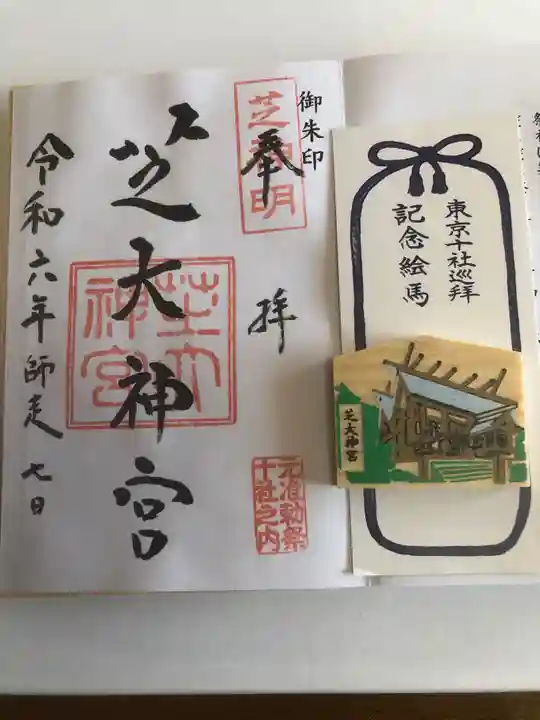 御朱印
芝神明
奉拝
元准勅祭
十社之内
芝大神宮
芝大
神宮
令和六年師走七日
東京十社巡拝
記念絵馬
芝大神宮